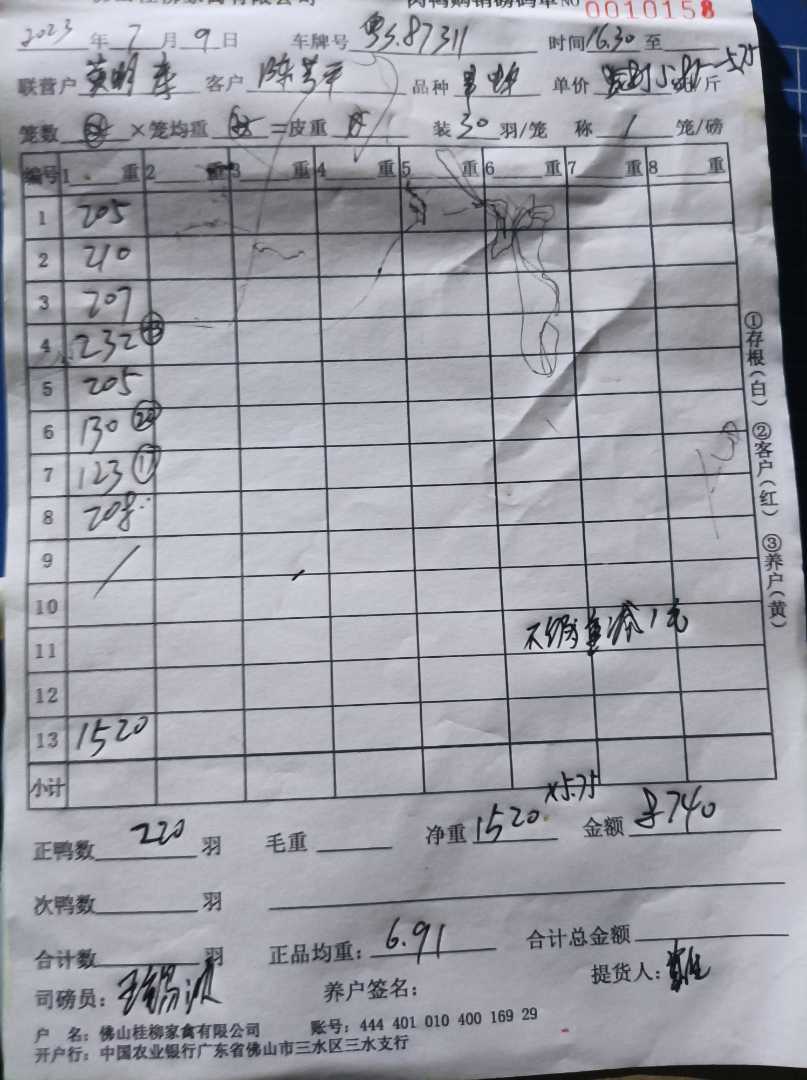 佛山桂柳家禽有限公司 肉鸭购销磅码单 NO 0010158
2023 年 7 月 9 日 车牌号 粤S.87311 时间 16.30 至
联营户 客户 品种 单价 /斤 5.75
笼数 × 笼均重 = 皮重 装 30 羽/笼 称 1 笼/磅
编号 1 重 2 重 3 重 4 重 5 重 6 重 7 重 8 重
1 205
2 210
3 207
4 232
5 205
6 130 20
7 123
8 208
9 /
10
11
12
13 1520
小计
①存根(白) ②客户(红) ③养户(黄)
×5.75
正鸭数 220 羽 毛重 净重 1520 金额 8740
次鸭数 羽
合计数 羽 正品均重: 6.91 合计总金额
司磅员: 养户签名: 提货人:
户 名: 佛山桂柳家禽有限公司 账号: 444 401 010 400 169 29
开户行: 中国农业银行广东省佛山市三水区三水支行